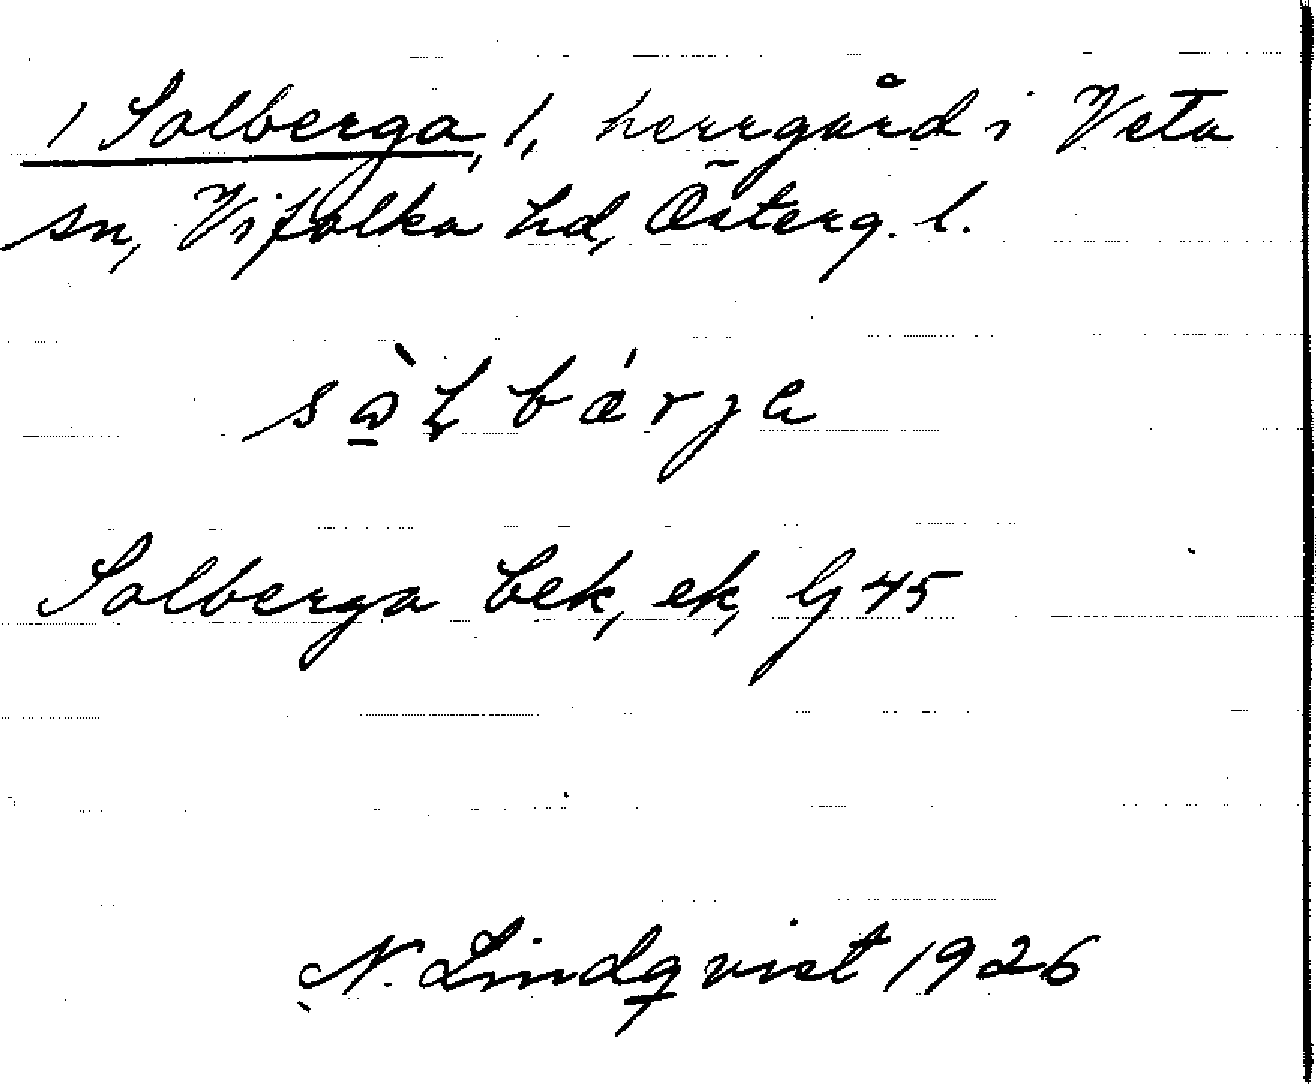 1 Solberga, 1, herrgård i Veta
sn, Vifolka hd, Österg. l.
Solberga bek, ek, lg 45
N. Lindqvist 1926